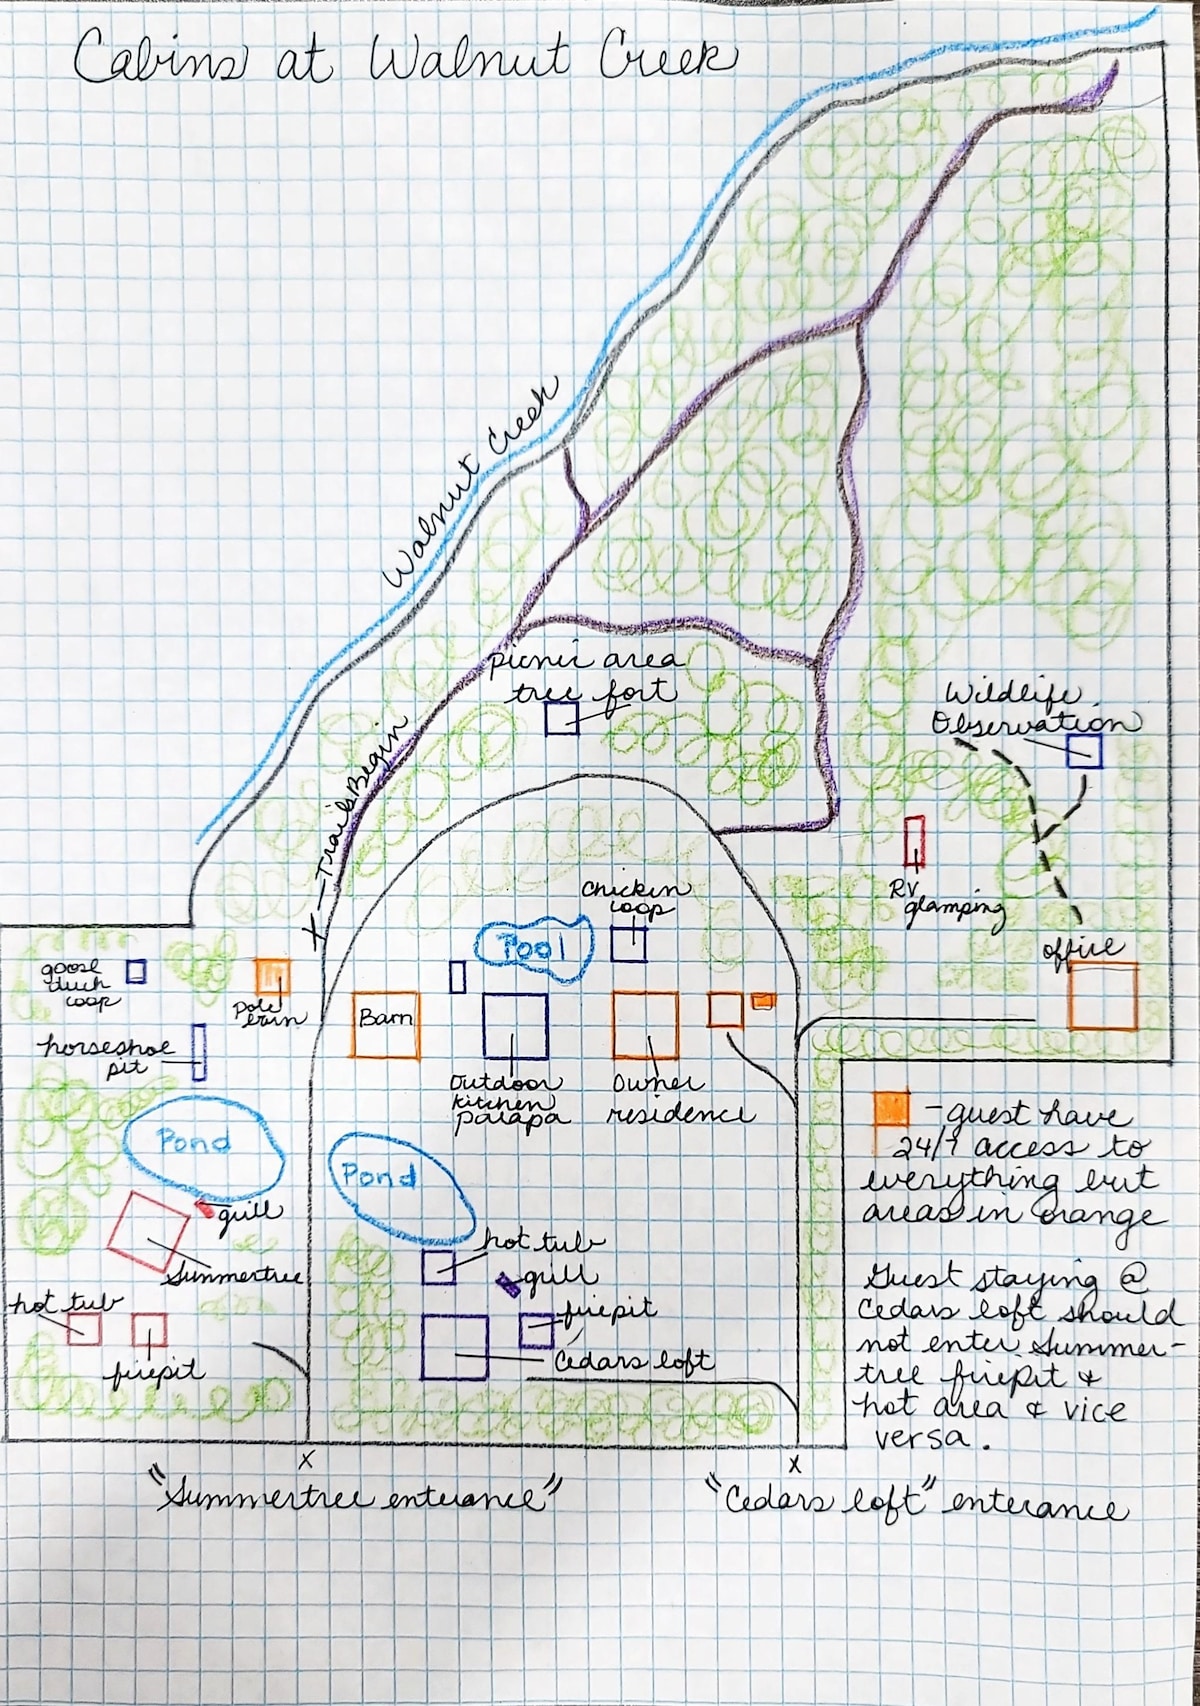 Cabins at Walnut Creek
Walnut Creek
picnic area
tree fort
Wildlife
Observation
X - Trails Begin
RV
glamping
Chicken
coop
Pool
office
goose
duck
coop
Pole
barn
Barn
horseshoe
pit
Outdoor
kitchen
palapa
Owner
residence
- guest have
24/7 access to
everything but
areas in orange
Pond
Pond
grill
Summertree
hot tub
grill
firepit
Cedars loft
hot tub
firepit
Guest staying @
Cedars loft should
not enter Summer-
tree firepit &
hot area & vice
versa.
X
X
"Summertree entrance"
"Cedars loft" entrance